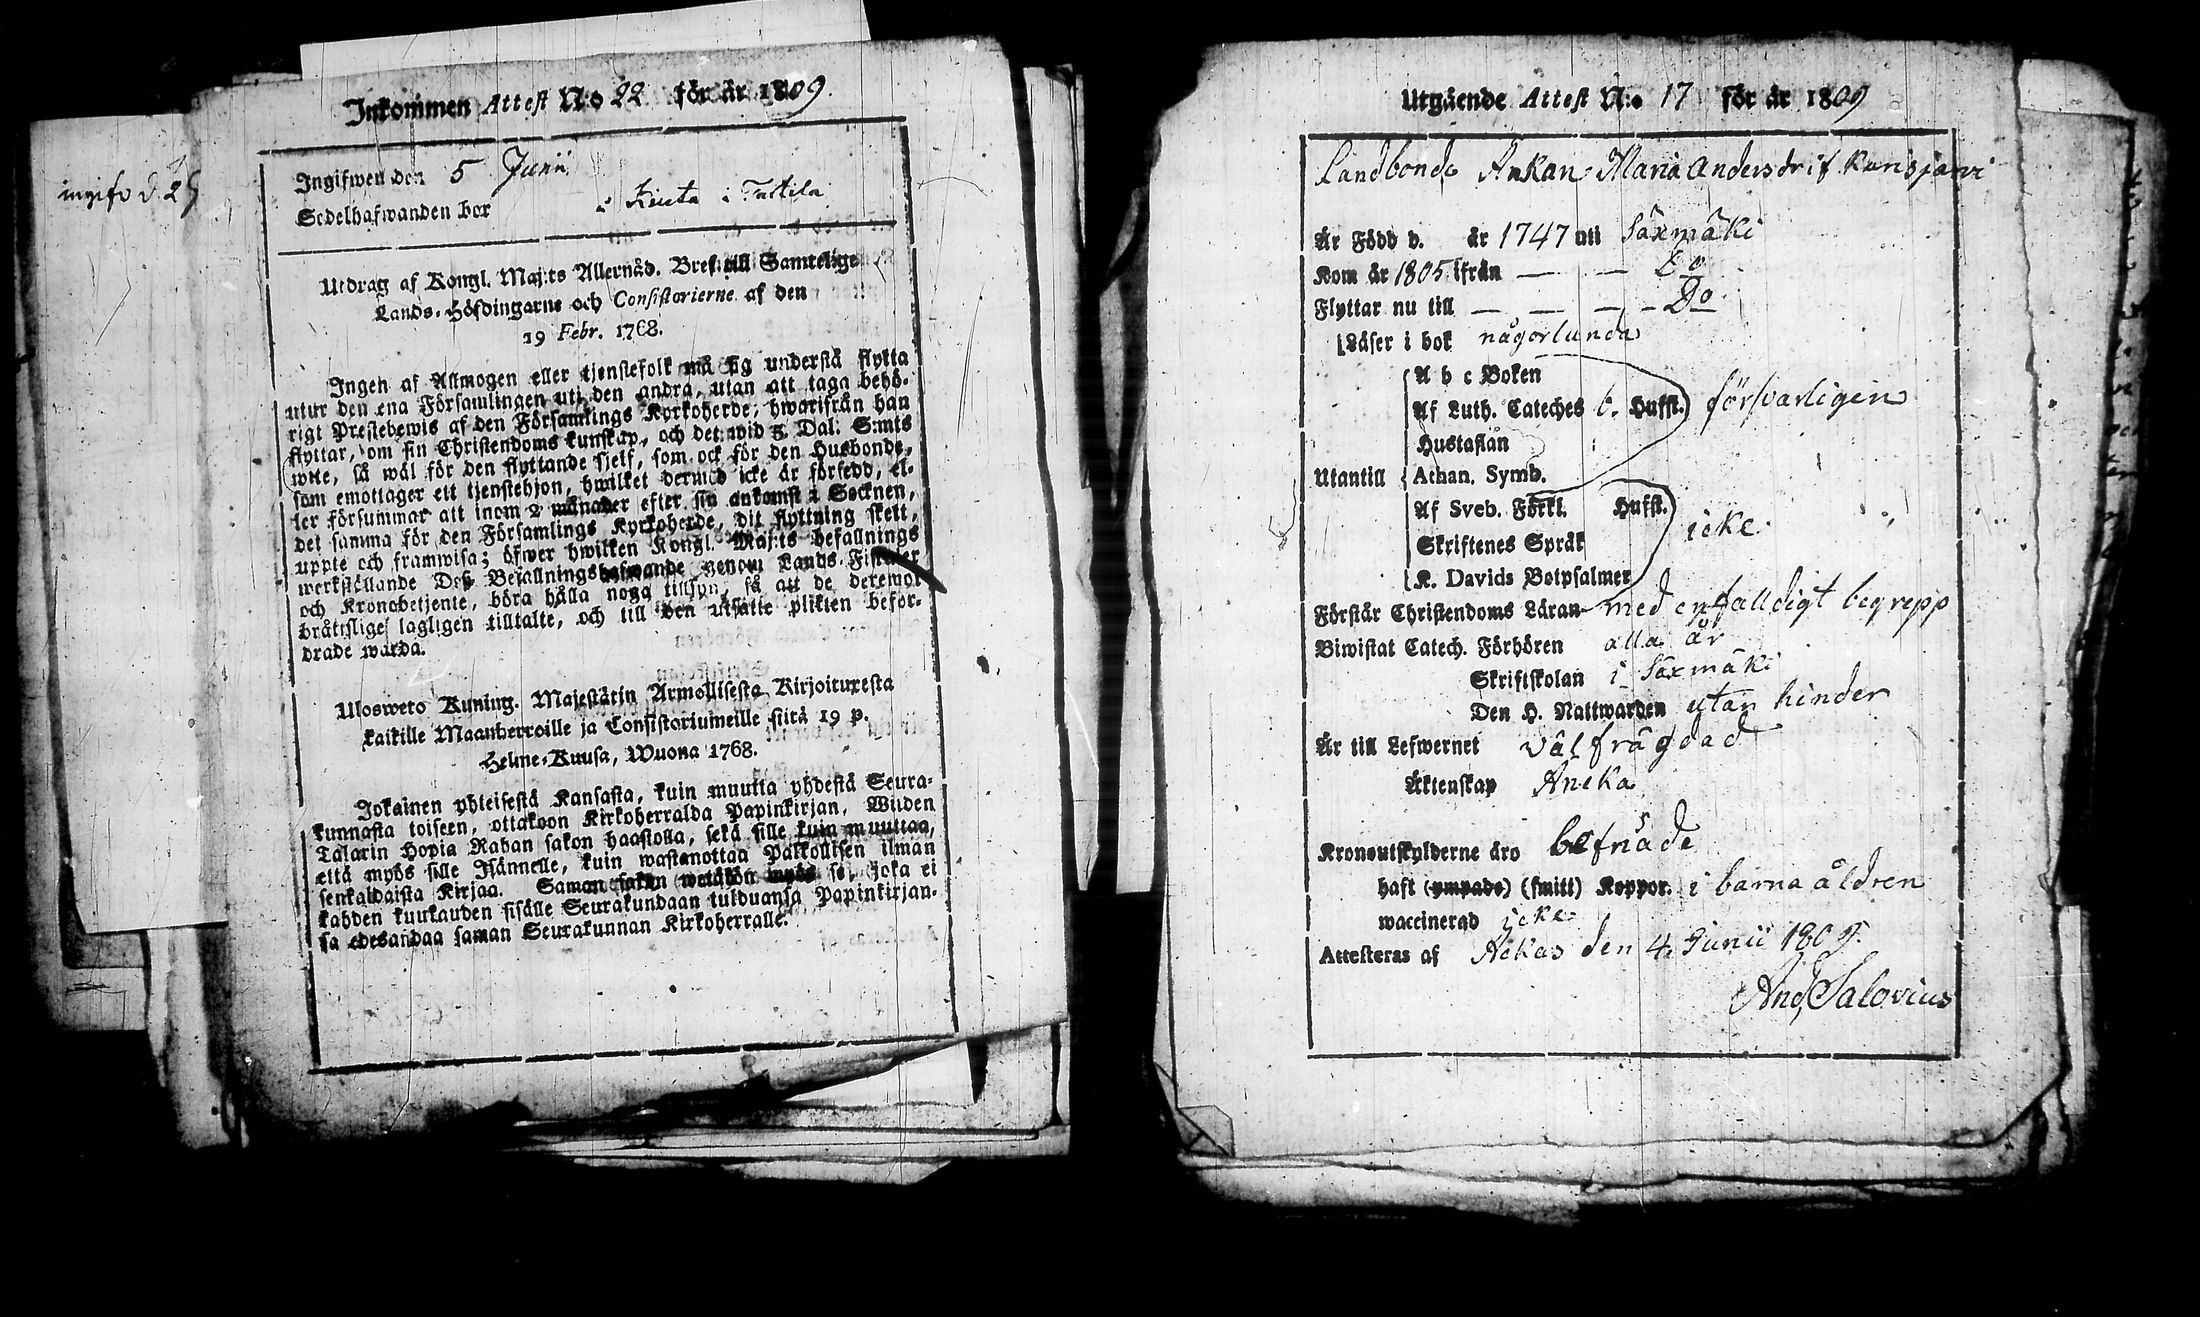 ingifv d. 25
Inkommen Attest N:o 22 för år 1809.
Ingifwen den 5 Junii
Sedelhafwanden bor i i Tuttila
Utdrag af Kongl. Maj:ts Allernåd. Bref till Samtelige
Lands-Höfdingarne och Consistorierne af den
19 Febr. 1768.
Ingen af Allmogen eller tjenstefolk må sig understå flytta
utur den ena Församlingen uti den andra, utan att taga behö-
rigt Prestebewis af den Församlings Kyrkoherde, hwarifrån han
flyttar, om sin Christendoms kunskap, och det wid 5 Dal. S:mts
wite, så wäl för den flyttande sjelf, som ock för den Husbonde,
som emottager ett tjenstehjon, hwilket dermed icke är försedd, el-
ler försummar att inom 2 månader efter sin ankomst i Socknen,
det samma för den Församlings Kyrkoherde, dit flyttning skett,
uppte och framwisa; öfwer hwilken Kongl. Maj:ts befallnings
werkställande Deß Befallningshafwande genom Lands-Fiscaler
och Kronobetjente, böra hålla noga tillsyn, så att de deremot
bråttslige lagligen tilltalte, och till den utsatte plikten befor-
drade warda.
Ulosweto Kuning. Majestätin Armollisesta Kirjoituxesta
kaikille Maanherroille ja Consistoriumeille siitä 19 p.
Helme-Kuusa, Wuona 1768.
Jokainen yhteisestä Kansasta, kuin muutta yhdestä Seura-
kunnasta toiseen, ottakoon Kirkoherralda Papinkirjan, Wiiden
Talarin Hopia Rahan sakon haastolla, sekä sille kuin muuttaa,
että myös sille Isännelle, kuin wastanottaa Palkollisen ilman
senkaldaista Kirjaa. Saman sakon wetäkön myös se, joka ei
kahden kuukauden sisälle Seurakundaan tulduansa Papinkirjan-
sa edesandaa saman Seurakunnan Kirkoherralle.
Utgående Attest N:o 17 för år 1809
Landbonde Ankan Maria Andersdr if. Kurisjärvi
Är Född d. år 1747 uti Säxmäki
Kom år 1805 ifrån — — Do
Flyttar nu till — — — Do
Läser i bok någorlunda
A b c Boken
Af Luth. Cateches 6. Hufst. försvarligen
Hustaflan
Utantill Athan. Symb.
Af Sveb. Förkl. Hufst.
icke.
Skriftenes Språk
K. Davids Botpsalmer
Förstår Christendoms Läran med enfalldigt begrepp
Biwistat Catech. Förhören alla år
Skriftskolan i Säxmäki
Den H. Nattwarden utan hinder
Är till Lefwernet välfrägdad
Äktenskap Äncka
Kronoutskylderne äro befriade
haft (ympade) (smitt) Koppor. i barna åldren
waccinerad icke
Attesteras af Ackas den 4. Junii 1809.
And, Salovius